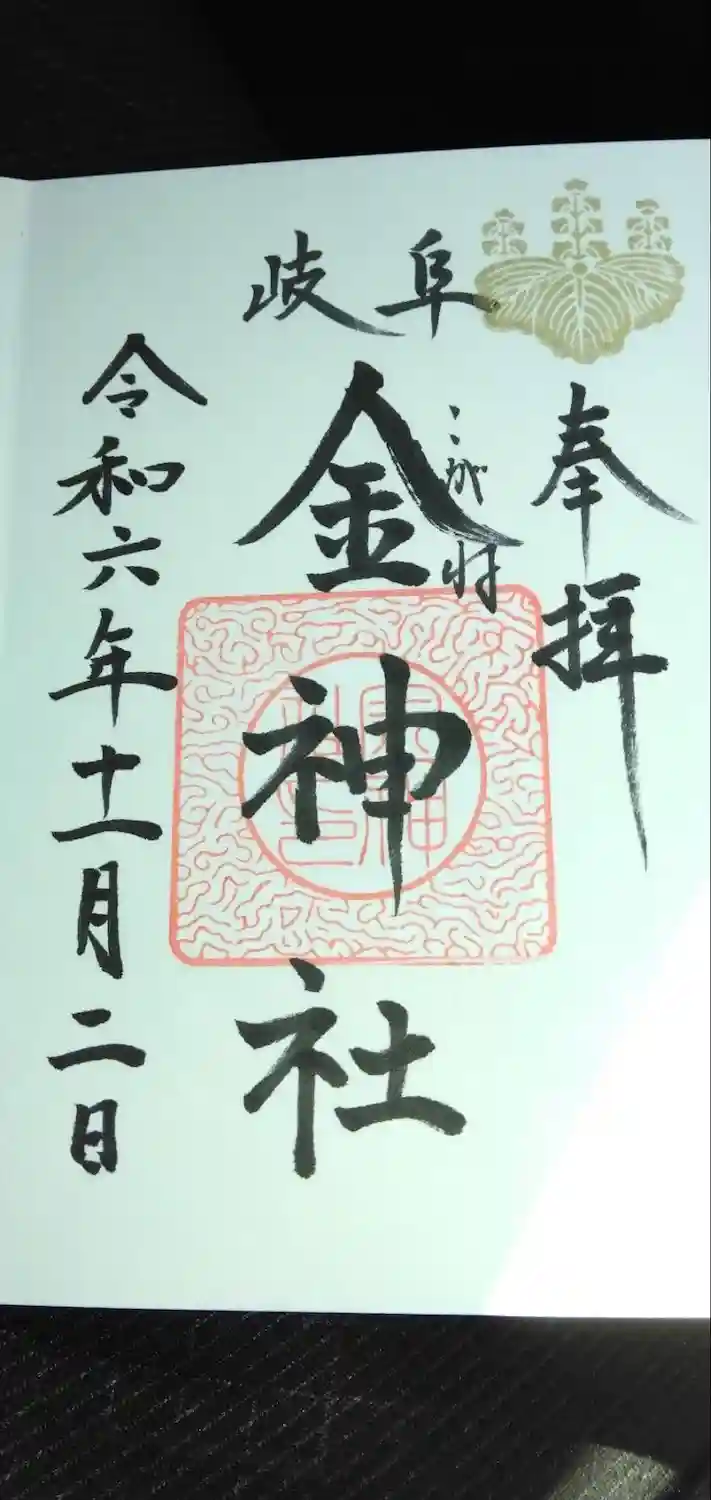 奉拝
岐阜
こがね
金神社
令和六年十一月二日